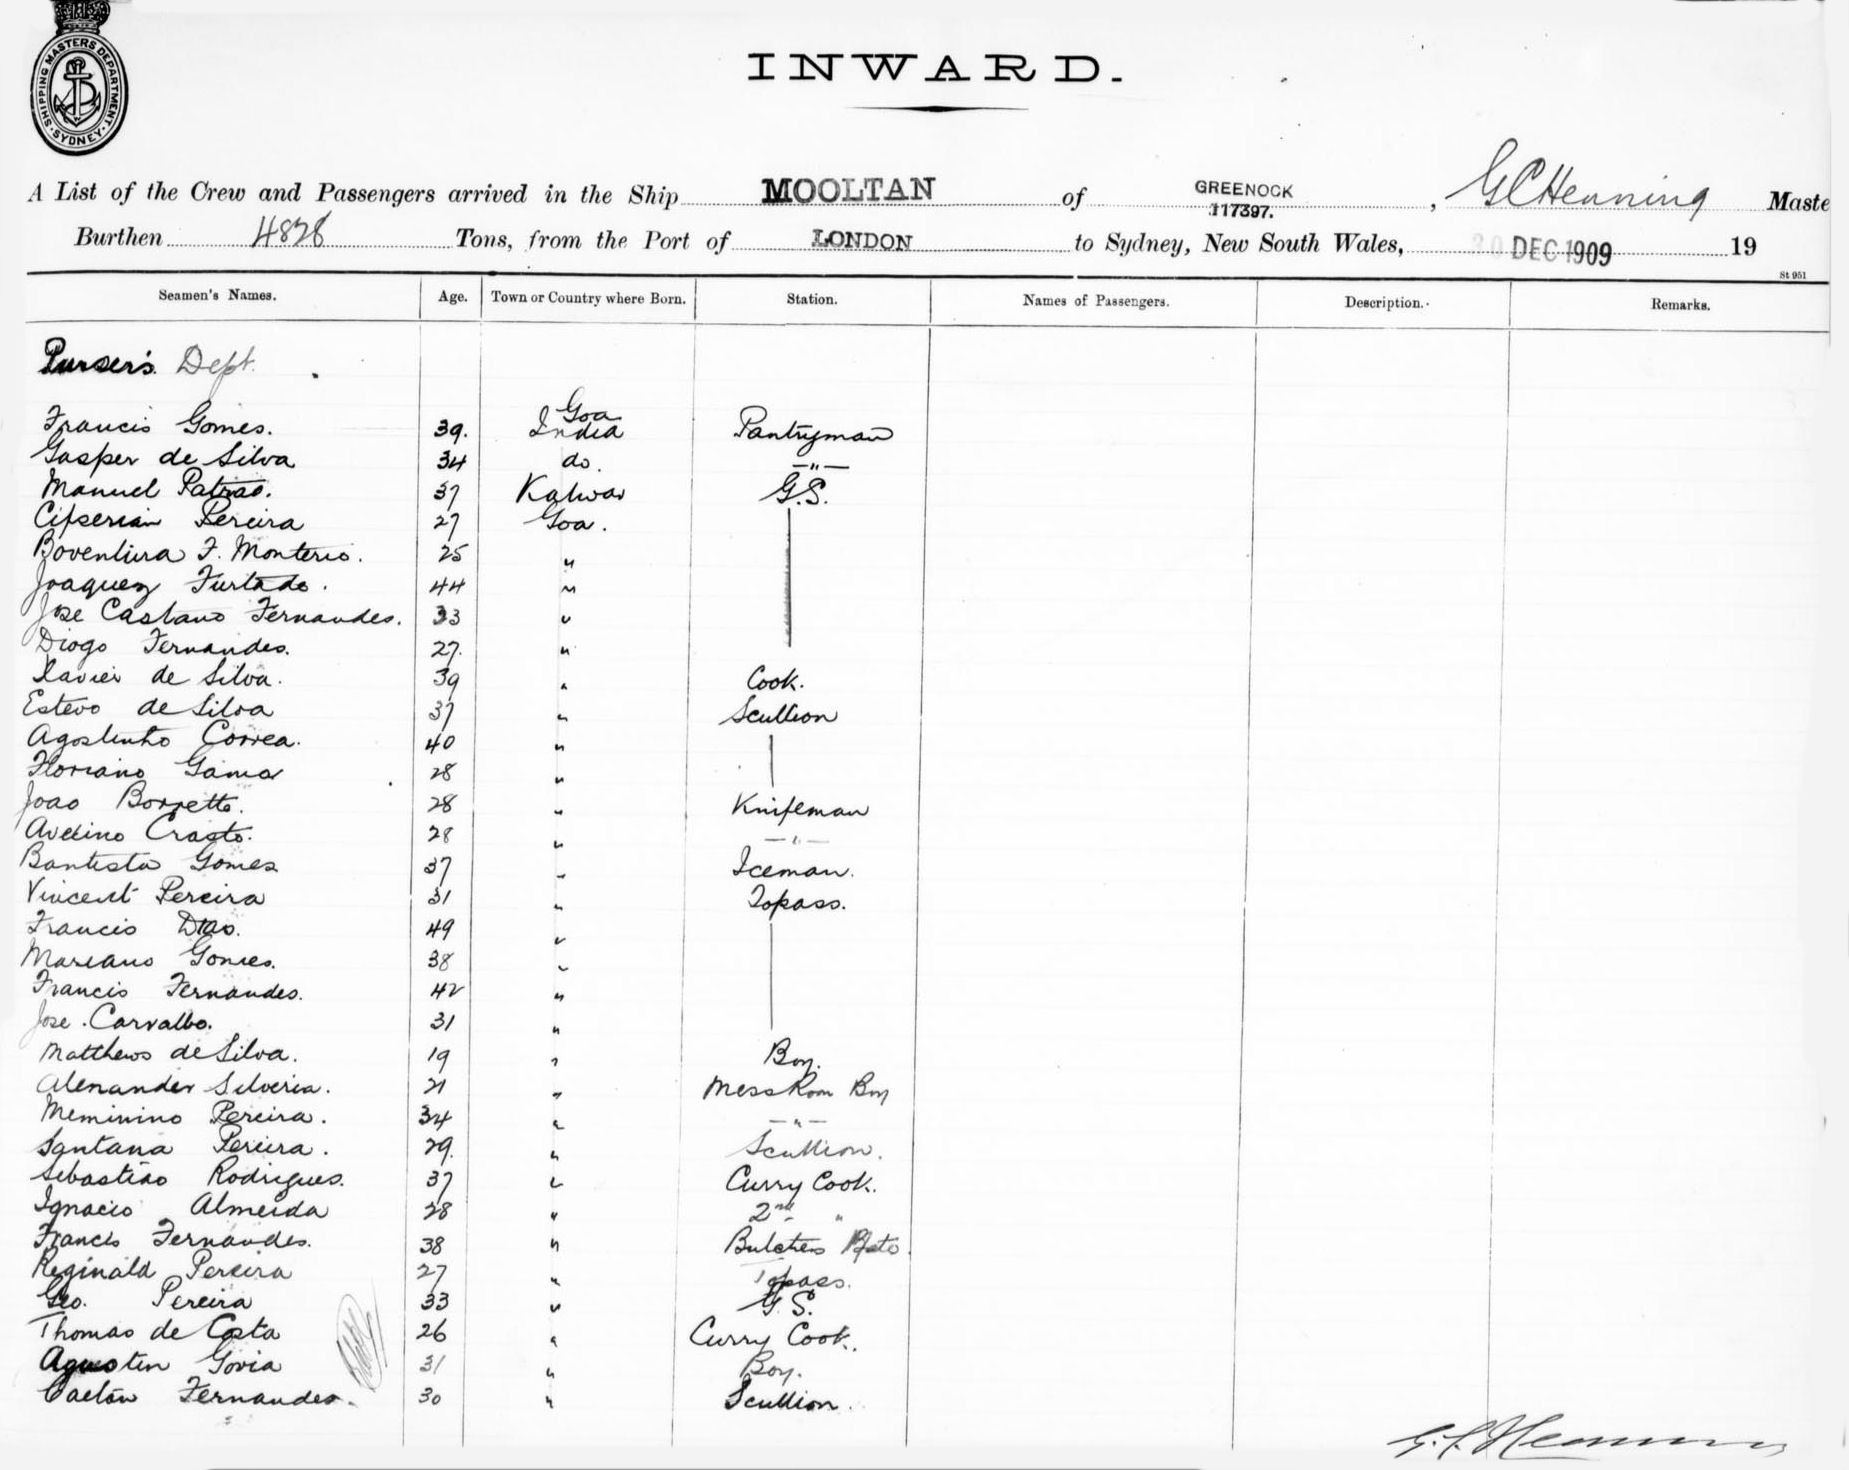 SHIPPING MASTERS DEPARTMENT.
SYDNEY
INWARD.
A List of the Crew and Passengers arrived in the Ship MOOLTAN of GREENOCK 117397. , G C Henning Maste
Burthen 4828 Tons, from the Port of LONDON to Sydney, New South Wales, 30 DEC 1909 19
St 951
Seamen's Names. Age. Town or Country where Born. Station. Names of Passengers. Description. Remarks.
Purser's Dept.
Francis Gomes. 39. Goa India Pantryman
Gasper de Silva 34 do. —"—
Manuel Patrao. 37 Kalwar G.S.
Cipserian Pereira 27 Goa.
Boventura F. Monterio. 25 "
Joaquez Furtado. 44 "
Jose Caetano Fernandes. 33 "
Diogo Fernandes. 27. "
Xavier de Silva. 39 " Cook.
Estevo de Silva 37 " Scullion
Agostinho Correa. 40 "
Floriano Gama 28 "
Joao Borretto. 28 " Knifeman
Avelino Crasto. 28 " —"—
Bautista Gomes 37 " Iceman.
Vincent Pereira 31 " Topass.
Francis Dias. 49 "
Mariano Gomes. 38 "
Francis Fernandes. 42 "
Jose Carvalho. 31 "
Matthews de Silva. 19 " Boy.
Alexander Silveria. 21 " Mess Room Boy
Meminino Pereira. 34 " —"—
Santana Pereira. 29. " Scullion.
Sebastiao Rodrigues. 37 " Curry Cook.
Ignacio Almeida 28 " 2nd "
Francis Fernandes. 38 " Butchers
Reginald Pereira 27 " Topass.
Geo. Pereira 33 " G.S.
Thomas de Costa 26 " Curry Cook.
Agustin Govia 31 " Boy.
Caetan Fernandes. 30 " Scullion.
G. C. Henning